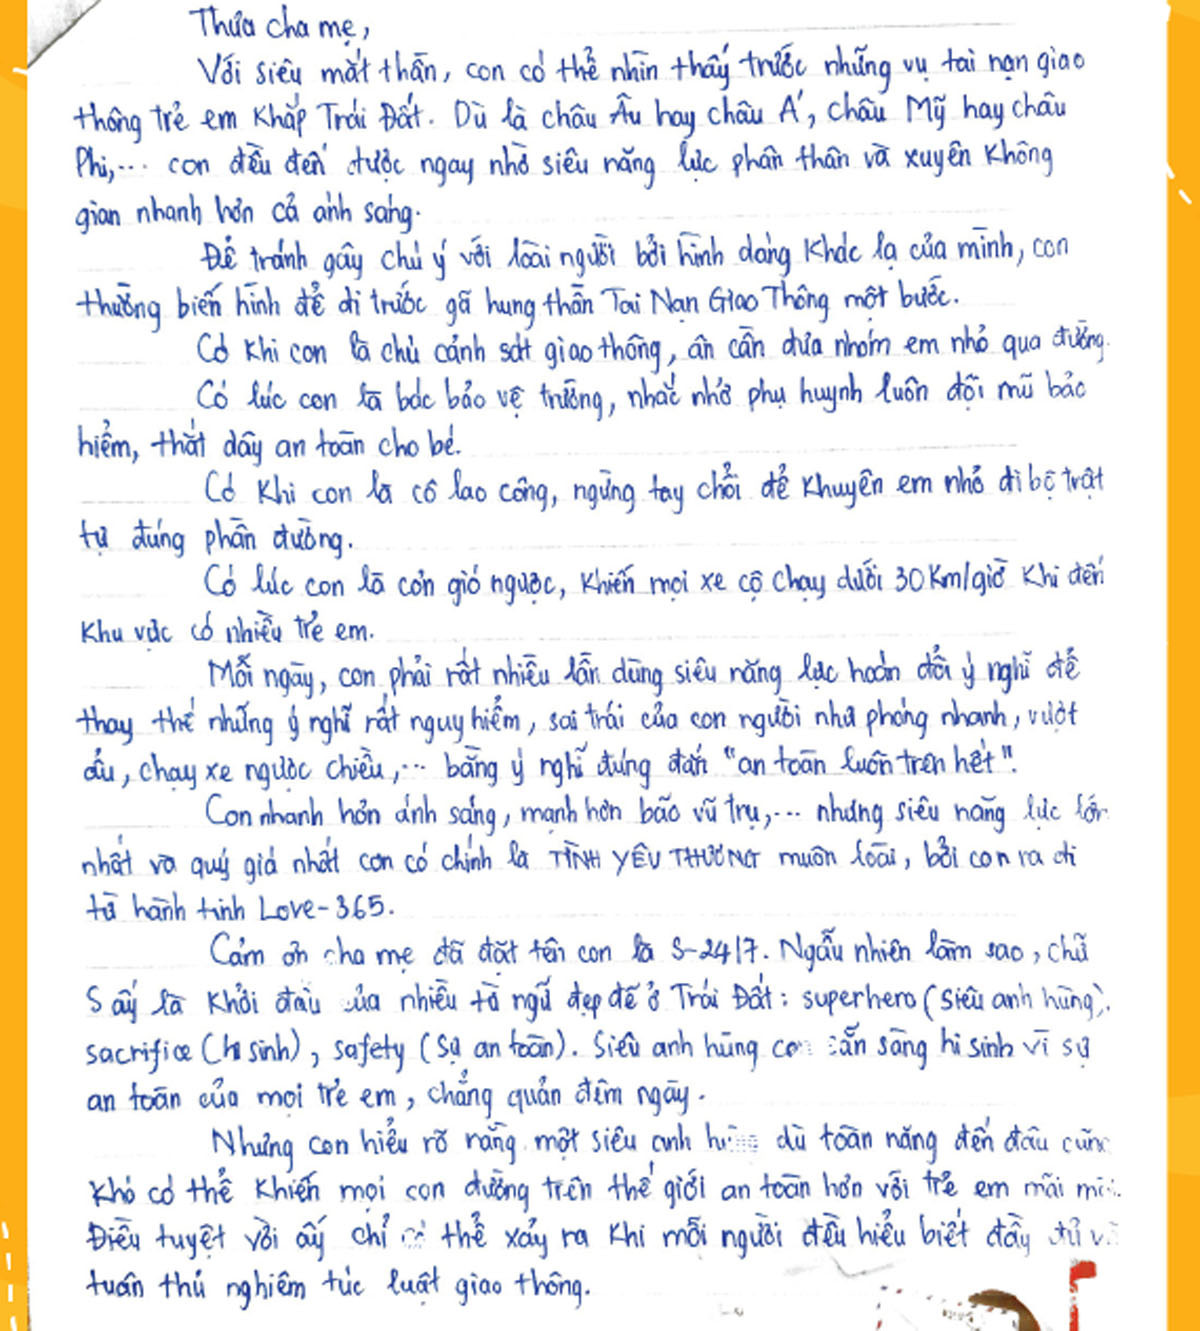 Thưa cha mẹ,
Với siêu mắt thần, con có thể nhìn thấy trước những vụ tai nạn giao
thông trẻ em khắp Trái Đất. Dù là châu Âu hay châu Á, châu Mỹ hay châu
Phi,... con đều đến được ngay nhờ siêu năng lực phân thân và xuyên không
gian nhanh hơn cả ánh sáng.
Để tránh gây chú ý với loài người bởi hình dạng khác lạ của mình, con
thường biến hình để đi trước gã hung thần Tai Nạn Giao Thông một bước.
Có khi con là chú cảnh sát giao thông, ân cần đưa nhóm em nhỏ qua đường.
Có lúc con là bác bảo vệ trường, nhắc nhở phụ huynh luôn đội mũ bảo
hiểm, thắt dây an toàn cho bé.
Có khi con là cô lao công, ngừng tay chổi để khuyên em nhỏ đi bộ trật
tự đúng phần đường.
Có lúc con là cơn gió ngược, khiến mọi xe cộ chạy dưới 30km/giờ khi đến
khu vực có nhiều trẻ em.
Mỗi ngày, con phải rất nhiều lần dùng siêu năng lực hoán đổi ý nghĩ để
thay thế những ý nghĩ rất nguy hiểm, sai trái của con người như phóng nhanh, vượt
ẩu, chạy xe ngược chiều,... bằng ý nghĩ đúng đắn "an toàn luôn trên hết".
Con nhanh hơn ánh sáng, mạnh hơn bão vũ trụ,... nhưng siêu năng lực lớn
nhất và quý giá nhất con có chính là TÌNH YÊU THƯƠNG muôn loài, bởi con ra đi
từ hành tinh Love-365.
Cảm ơn cha mẹ đã đặt tên con là S-24/7. Ngẫu nhiên làm sao, chữ
S ấy là khởi đầu của nhiều từ ngữ đẹp đẽ ở Trái Đất: superhero (siêu anh hùng),
sacrifice (hi sinh), safety (sự an toàn). Siêu anh hùng con sẵn sàng hi sinh vì sự
an toàn của mọi trẻ em, chẳng quản đêm ngày.
Nhưng con hiểu rõ rằng một siêu anh hùng dù toàn năng đến đâu cũng
khó có thể khiến mọi con đường trên thế giới an toàn hơn với trẻ em mãi mãi.
Điều tuyệt vời ấy chỉ có thể xảy ra khi mỗi người đều hiểu biết đầy đủ và
tuân thủ nghiêm túc luật giao thông.